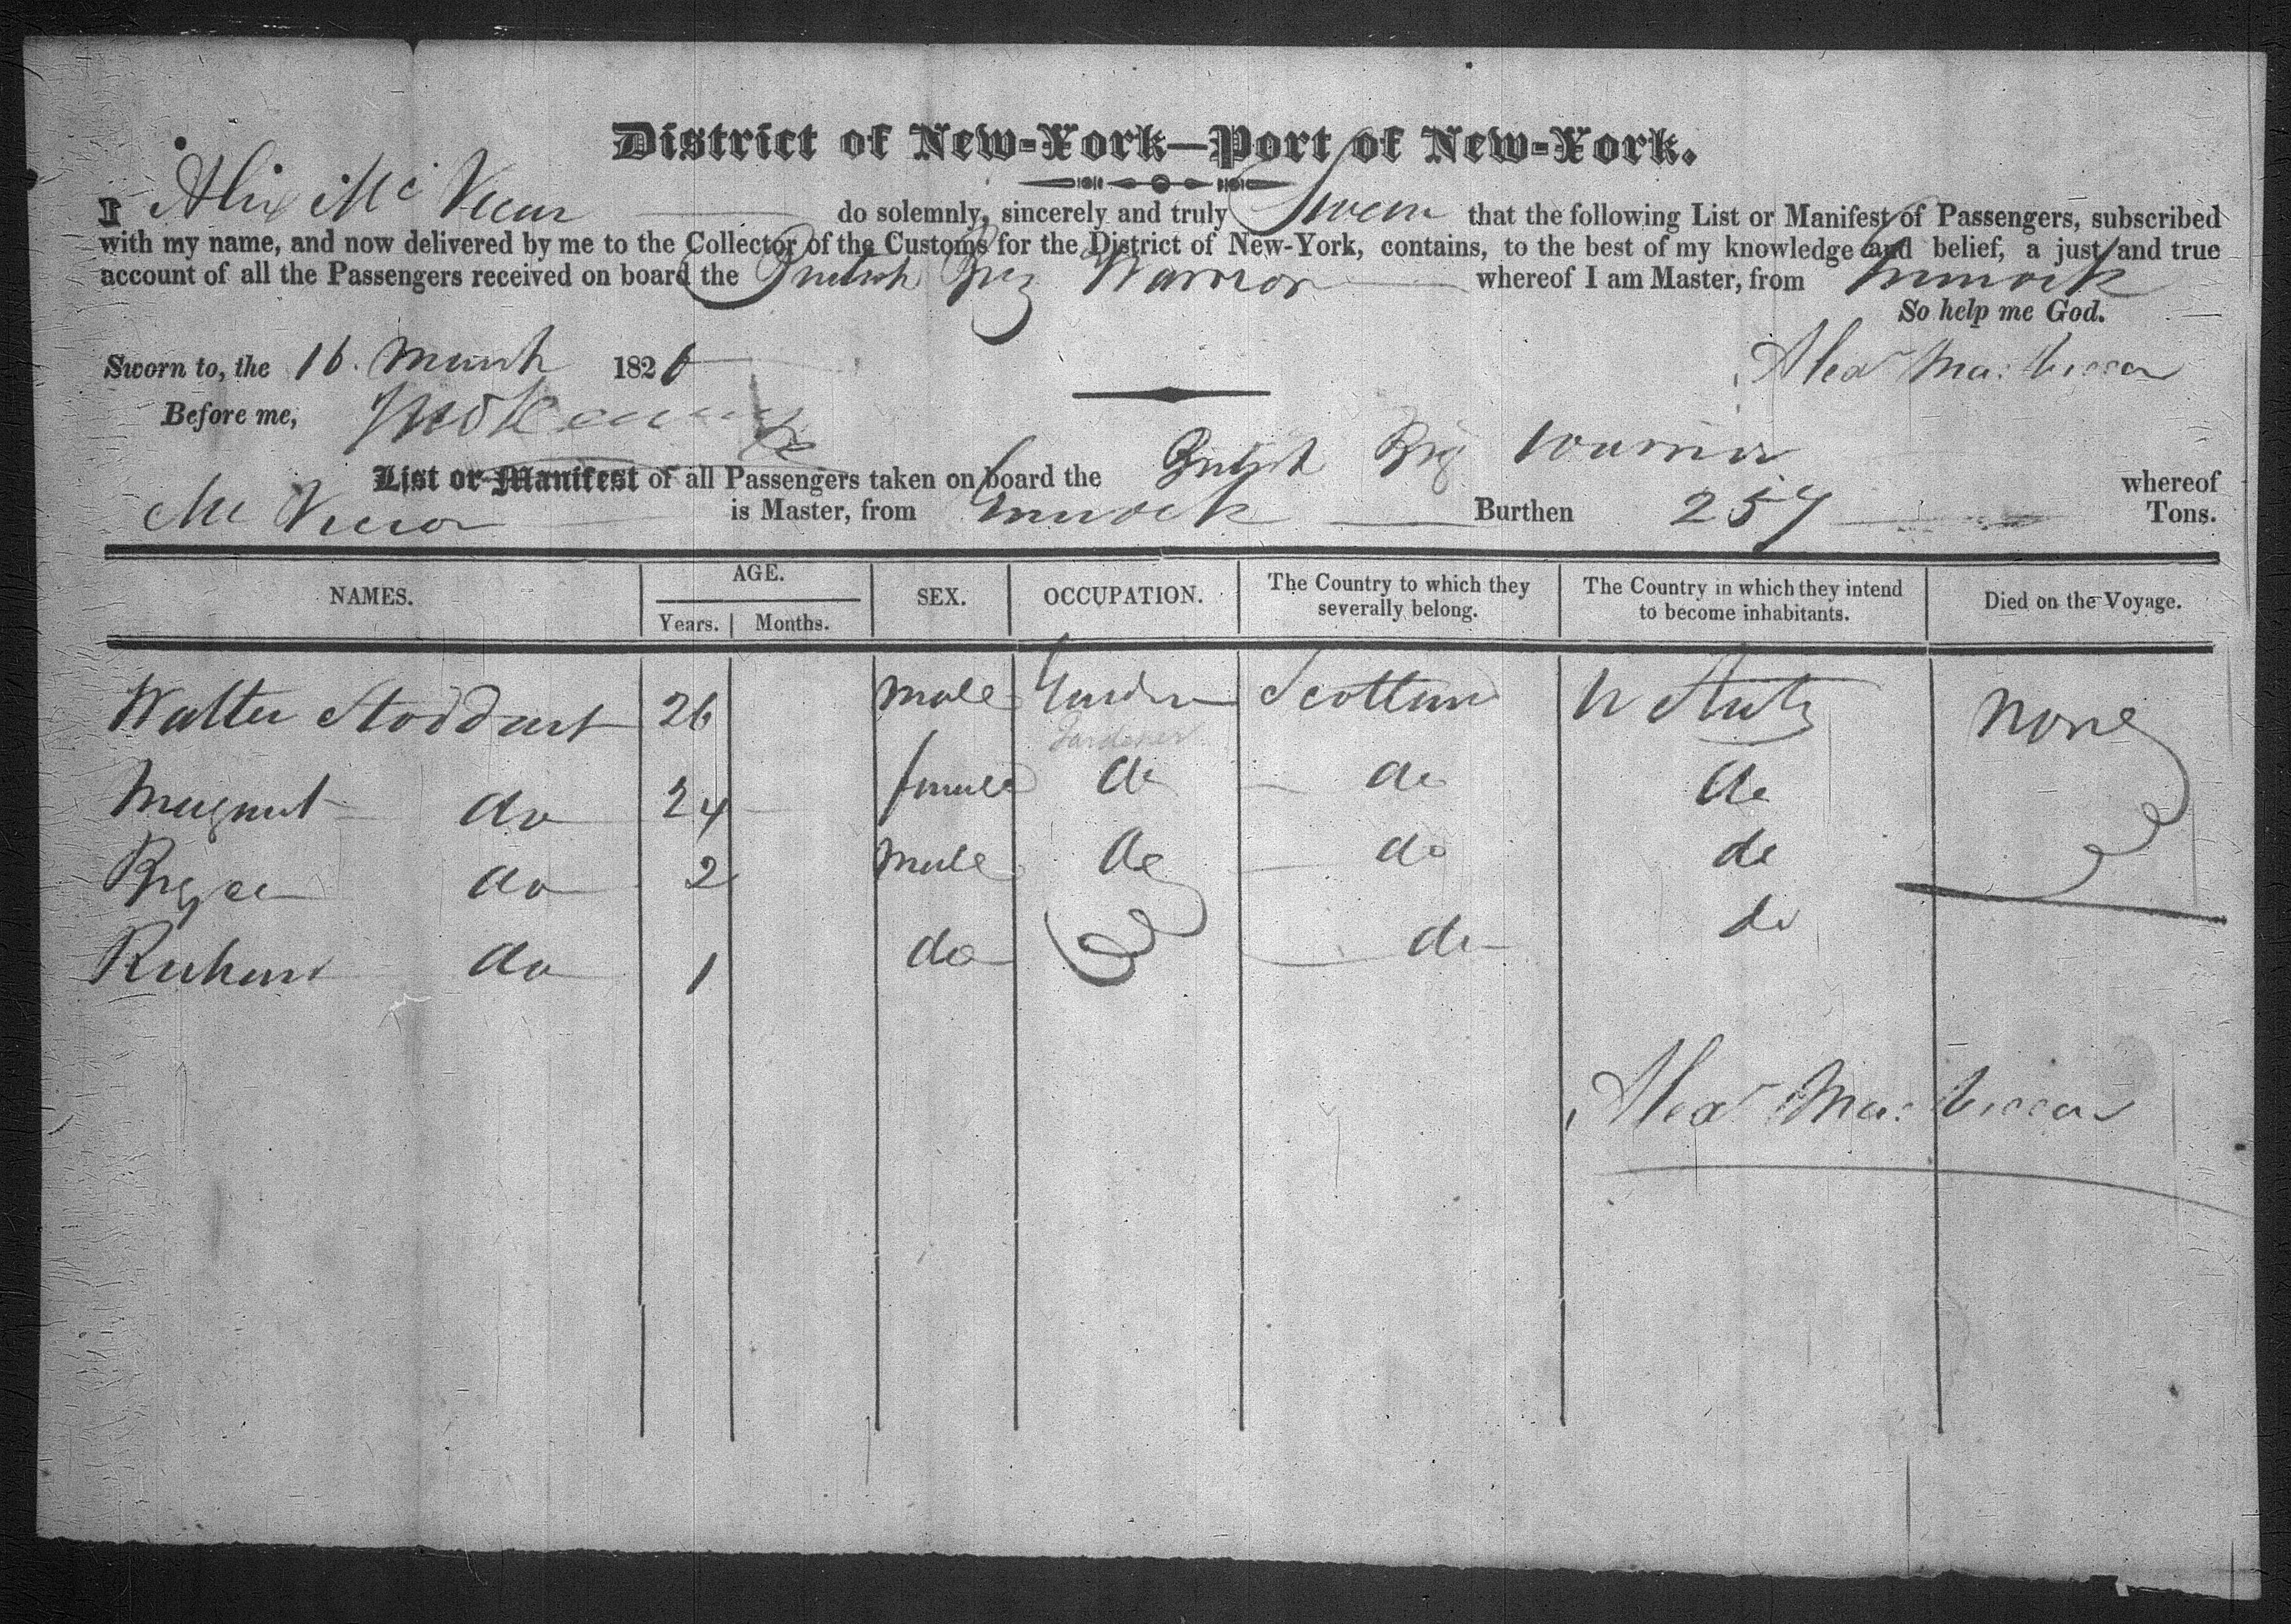 District of New-York—Port of New-York.
I Alex Mc Vicar do solemnly, sincerely and truly Swear that the following List or Manifest of Passengers, subscribed
with my name, and now delivered by me to the Collector of the Customs for the District of New-York, contains, to the best of my knowledge and belief, a just and true
account of all the Passengers received on board the British Brig Warrior whereof I am Master, from Greenock
So help me God.
Sworn to, the 16. March 1826
Alexr Mac Viccar
Before me,
List or Manifest of all Passengers taken on board the British Brig Warrior whereof
Mc Vicar is Master, from Greenock Burthen 257 Tons.
NAMES. AGE. SEX. OCCUPATION. The Country to which they severally belong. The Country in which they intend to become inhabitants. Died on the Voyage.
Years. Months.
Walter Stoddart 26 male Gardner Scotland U States None
Gardener
Margaret do 24 female do do do
Bryce do 2 male do do do
Richard do 1 do do do
Alexr Mac Viccar